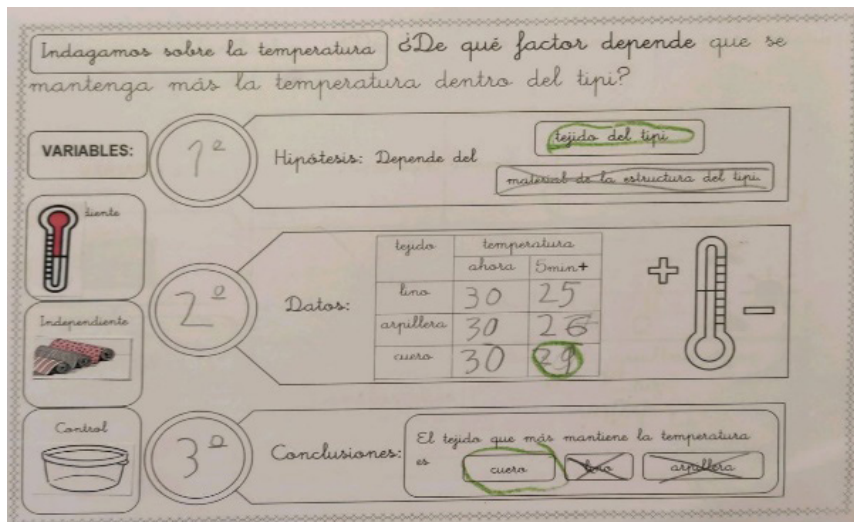 Indagamos sobre la temperatura ¿De qué factor depende que se
mantenga más la temperatura dentro del tipi?
VARIABLES:
1º
Hipótesis: Depende del
tejido del tipi
material de la estructura del tipi
diente
2º
Datos:
tejido temperatura
ahora 5min+
lino 30 25
arpillera 30 26
cuero 30 29
+ -
Independiente
Control
3º
Conclusiones:
El tejido que más mantiene la temperatura
es cuero lino arpillera